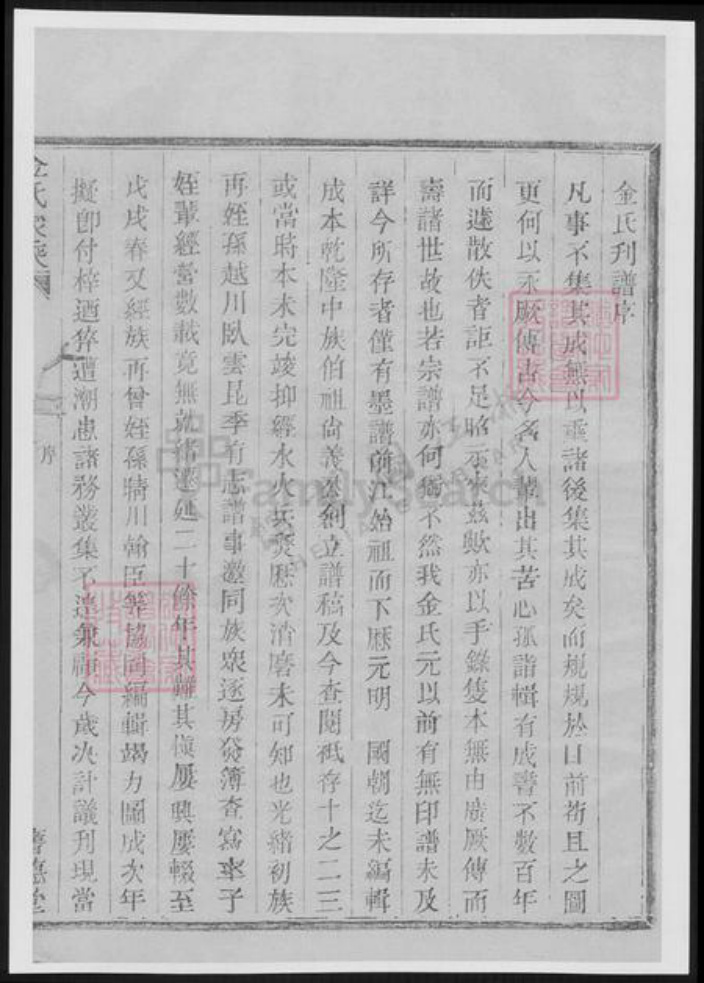 金氏刊譜序
凡事不集其成無以垂諸後集其成矣而規規於目前苟且之圖
更何以永厥傳古今名人輩出其苦心孤詣輯有成書不數百年
而遽散佚者詎不足昭示來茲歟亦以手錄隻本無由廣厥傳而
壽諸世故也若宗譜亦何獨不然我金氏元以前有無印譜未及
詳今所存者僅有墨譜前江始祖而下歷元明 國朝迄未編輯
成本乾隆中族伯祖尚義公創立譜稿及今查閱祗存十之二三
或當時本未完竣抑經水火兵燹歷次消磨未可知也光緒初族
再姪孫越川臥雲昆季有志譜事邀同族眾逐房發簿查寫率子
姪輩經營數載竟無就緒遷延二十餘年其難其慎屢興屢輟至
戊戌春又經族再曾姪孫晴川翰臣等協同編輯竭力圖成次年
擬卽付梓迺猝遭潮患諸務叢集不遑兼顧今歲決計議刊現當
金氏家乘
序